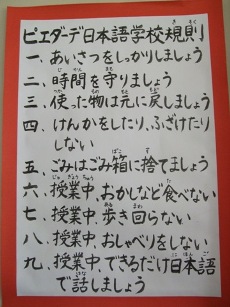 ピエダーデ日本語学校規則
一、あいさつをしっかりしましょう
二、時間を守りましょう
三、使った物は元に戻しましょう
四、けんかをしたり、ふざけたり
しない
五、ごみはごみ箱に捨てましょう
六、授業中、おかしなど食べない
七、授業中、歩き回らない
八、授業中、おしゃべりをしない
九、授業中、できるだけ日本語
で話しましょう